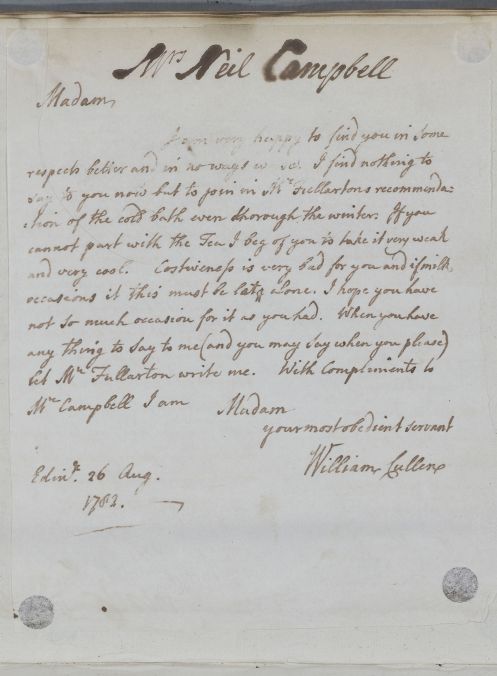 Mrs Neil Campbell
Madam
I am very happy to find you in some
respects better and in no ways worse. I find nothing to
say to you now but to join in Mr Fullartons recommenda=
=tion of the cold bath even thorough the winter. If you
cannot part with the Tea I beg of you to take it very weak
and very cool. Costiveness is very bad for you and if milk
occasions it this must be let alone. I hope you have
not so much occasion for it as you had. When you have
any thing to say to me (and you may say when you please)
let Mr Fullarton write me. With Compliments to
Mr Campbell I am Madam
your most obedient servant
William Cullen
Edinr. 26 Aug.
1783.